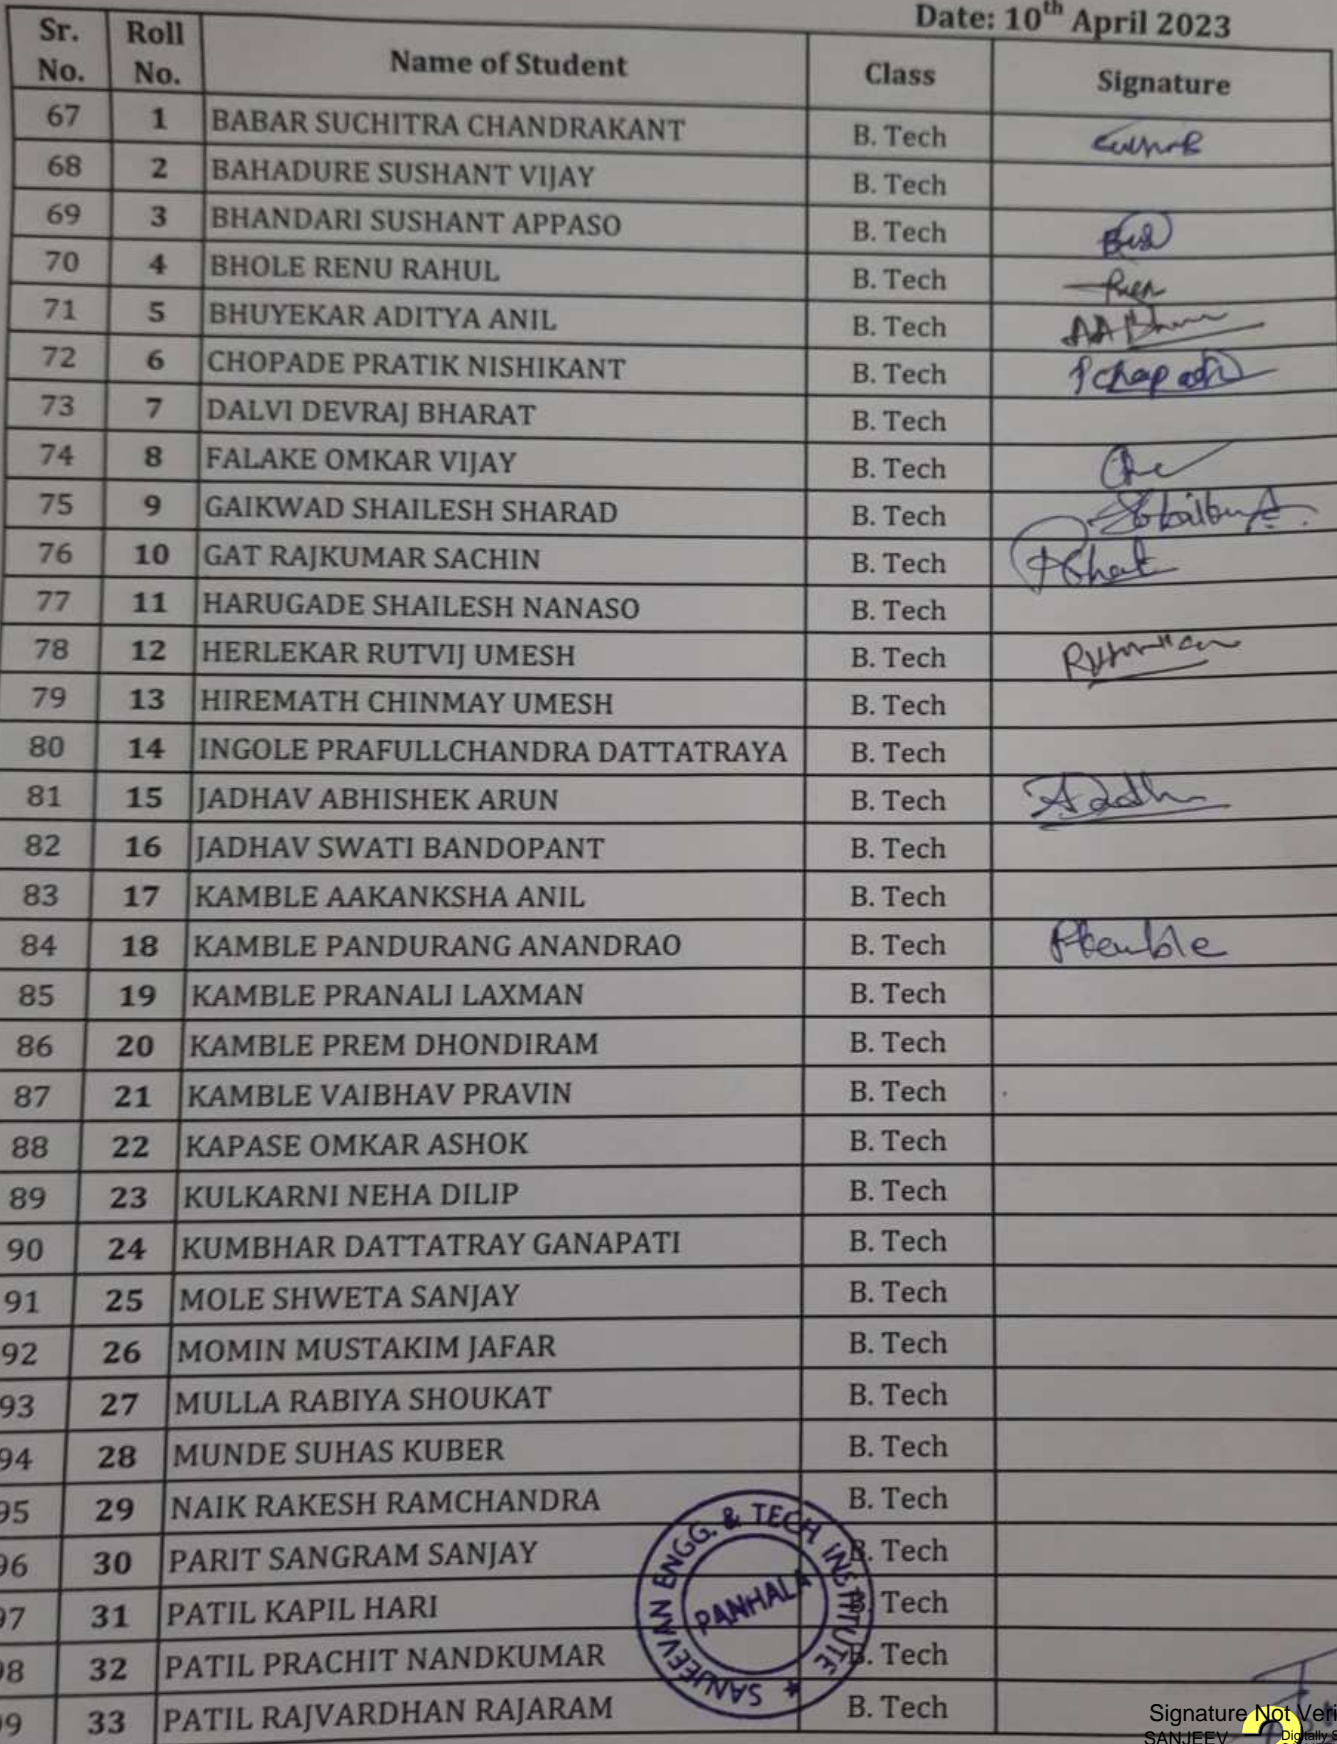 Date: 10th April 2023
Sr. No. Roll No. Name of Student Class Signature
67 1 BABAR SUCHITRA CHANDRAKANT B. Tech
68 2 BAHADURE SUSHANT VIJAY B. Tech
69 3 BHANDARI SUSHANT APPASO B. Tech
70 4 BHOLE RENU RAHUL B. Tech
71 5 BHUYEKAR ADITYA ANIL B. Tech
72 6 CHOPADE PRATIK NISHIKANT B. Tech
73 7 DALVI DEVRAJ BHARAT B. Tech
74 8 FALAKE OMKAR VIJAY B. Tech
75 9 GAIKWAD SHAILESH SHARAD B. Tech
76 10 GAT RAJKUMAR SACHIN B. Tech
77 11 HARUGADE SHAILESH NANASO B. Tech
78 12 HERLEKAR RUTVIJ UMESH B. Tech
79 13 HIREMATH CHINMAY UMESH B. Tech
80 14 INGOLE PRAFULLCHANDRA DATTATRAYA B. Tech
81 15 JADHAV ABHISHEK ARUN B. Tech
82 16 JADHAV SWATI BANDOPANT B. Tech
83 17 KAMBLE AAKANKSHA ANIL B. Tech
84 18 KAMBLE PANDURANG ANANDRAO B. Tech Pkamble
85 19 KAMBLE PRANALI LAXMAN B. Tech
86 20 KAMBLE PREM DHONDIRAM B. Tech
87 21 KAMBLE VAIBHAV PRAVIN B. Tech
88 22 KAPASE OMKAR ASHOK B. Tech
89 23 KULKARNI NEHA DILIP B. Tech
90 24 KUMBHAR DATTATRAY GANAPATI B. Tech
91 25 MOLE SHWETA SANJAY B. Tech
92 26 MOMIN MUSTAKIM JAFAR B. Tech
93 27 MULLA RABIYA SHOUKAT B. Tech
94 28 MUNDE SUHAS KUBER B. Tech
95 29 NAIK RAKESH RAMCHANDRA B. Tech
96 30 PARIT SANGRAM SANJAY B. Tech
97 31 PATIL KAPIL HARI B. Tech
98 32 PATIL PRACHIT NANDKUMAR B. Tech
99 33 PATIL RAJVARDHAN RAJARAM B. Tech
SANJEEVAN ENGG. & TECH INSTITUTE
PANHALA
Signature Not Veri
SANJEEV
Digitally S